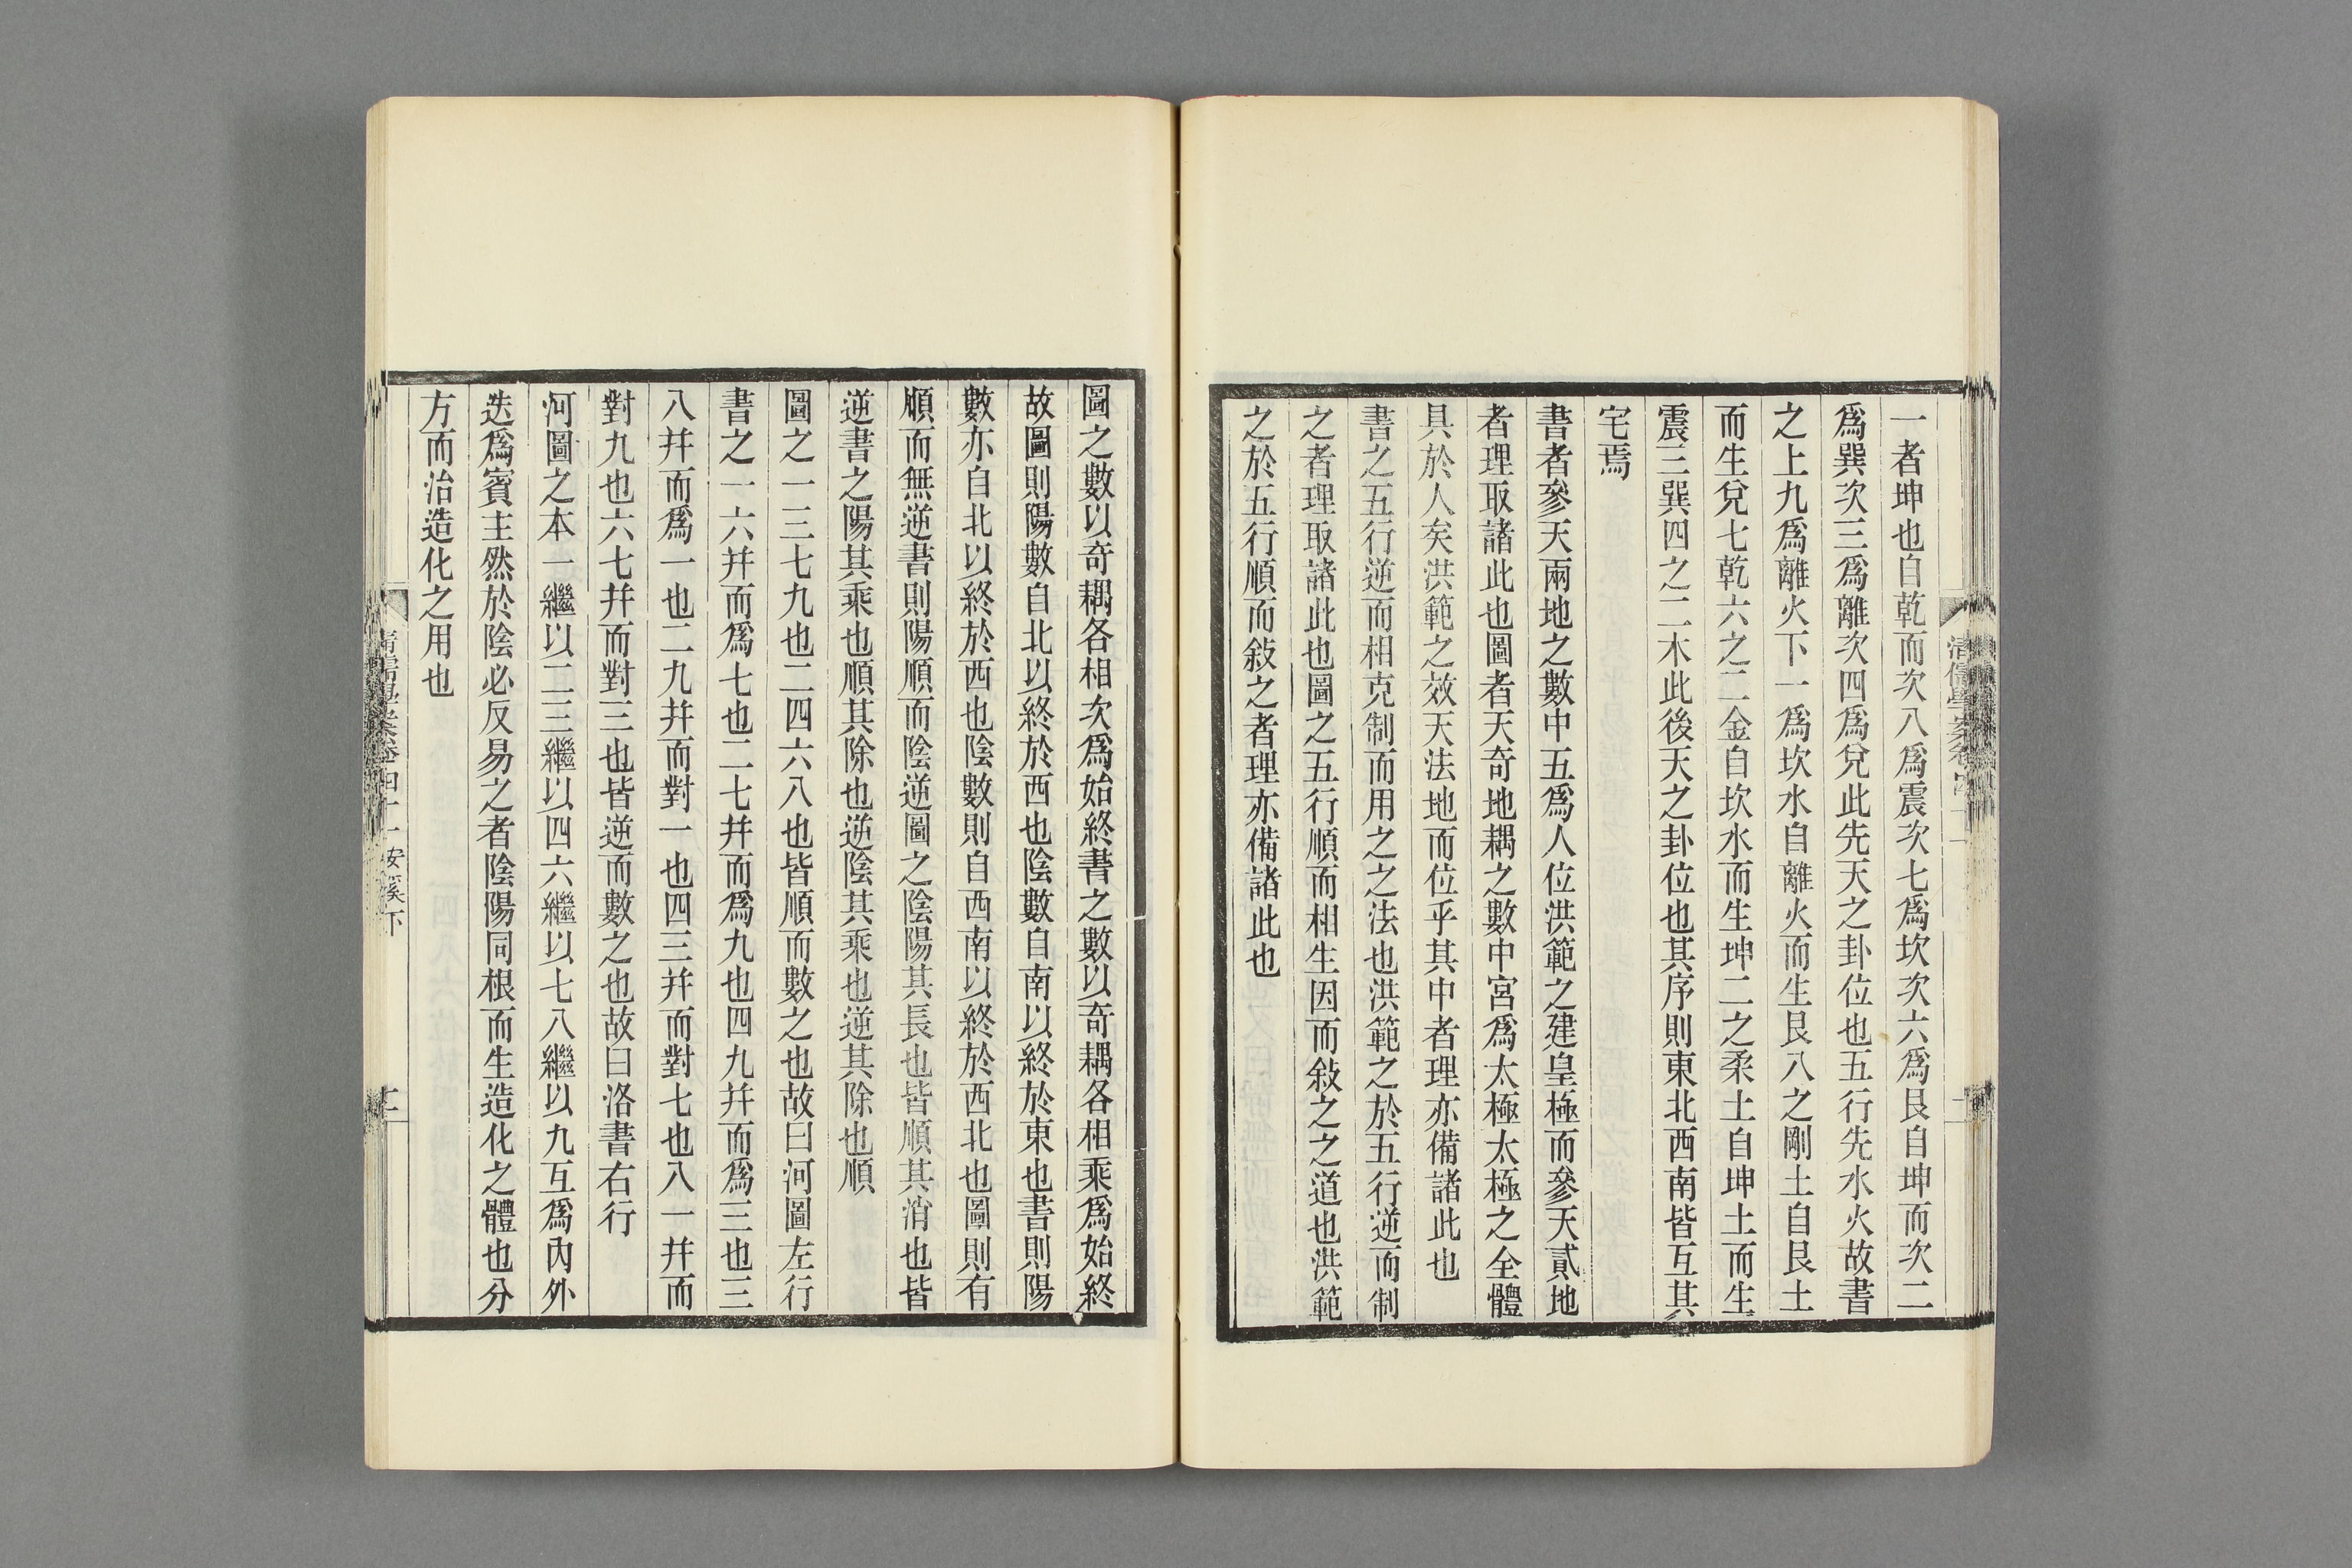 一者坤也自乾而次八爲震次七爲坎次六爲艮自坤而次二
爲巽次三爲離次四爲兌此先天之卦位也五行先水火故書
之上九爲離火下一爲坎水自離火而生艮八之剛土自艮土
而生兌七乾六之二金自坎水而生坤二之柔土自坤土而生
震三巽四之二木此後天之卦位也其序則東北西南皆互其
宅焉
書者參天兩地之數中五爲人位洪範之建皇極而參天貳地
者理取諸此也圖者天奇地耦之數中宮爲太極太極之全體
具於人矣洪範之效天法地而位乎其中者理亦備諸此也
書之五行逆而相克制而用之之法也洪範之於五行逆而制
之者理取諸此也圖之五行順而相生因而敍之之道也洪範
之於五行順而敍之者理亦備諸此也
圖之數以奇耦各相次爲始終書之數以奇耦各相乘爲始終
故圖則陽數自北以終於西也陰數自南以終於東也書則陽
數亦自北以終於西也陰數則自西南以終於西北也圖則有
順而無逆書則陽順而陰逆圖之陰陽其長也皆順其消也皆
逆書之陽其乘也順其除也逆陰其乘也逆其除也順
圖之一三七九也二四六八也皆順而數之也故曰河圖左行
書之一六幷而爲七也二七幷而爲九也四九幷而爲三也三
八幷而爲一也二九幷而對一也四三幷而對七也八一幷而
對九也六七幷而對三也皆逆而數之也故曰洛書右行
河圖之本一繼以二三繼以四六繼以七八繼以九互爲內外
迭爲賓主然於陰必反易之者陰陽同根而生造化之體也分
方而治造化之用也
清儒學案卷四十一 安溪下